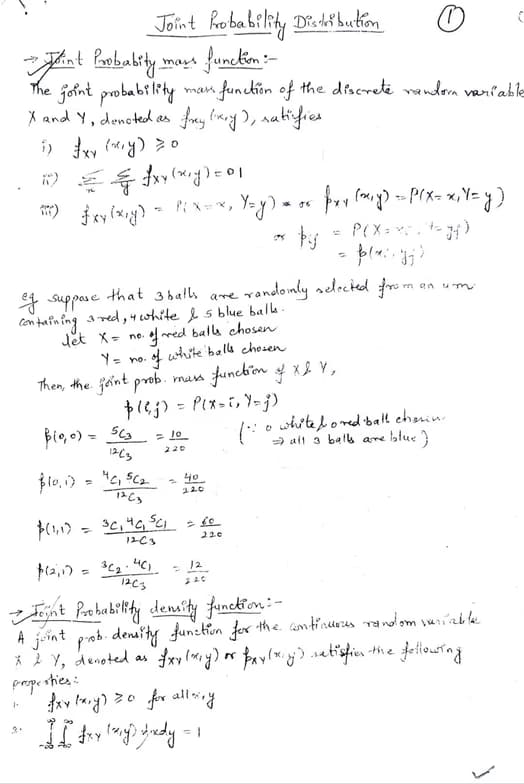 Joint Probability Distribution ①
→ Joint Probability mass function :-
The joint probability mass function of the discrete random variable
X and Y, denoted as fxy (x,y), satisfies
i) fxy (x,y) ≥ 0
ii) Σx Σy fxy (x,y) = 01
iii) fxy (x,y) = P(X=x, Y=y) = or pxy (x,y) = P(X=x, Y=y)
or pij = P(X=xi, Y=yj)
= p(xi, yj)
eg suppose that 3 balls are randomly selected from an urn
containing 3 red, 4 white & 5 blue balls.
Let X = no. of red balls chosen
Y = no. of white balls chosen
Then, the joint prob. mass function of X & Y,
p(i,j) = P(X=i, Y=j)
p(0,0) = 5C3 / 12C3 = 10/220 (∵ 0 white & 0 red ball chosen
⇒ all 3 balls are blue)
p(0,1) = 4C1 5C2 / 12C3 = 40/220
p(1,1) = 3C1 4C1 5C1 / 12C3 = 60/220
p(2,1) = 3C2 · 4C1 / 12C3 = 12/220
→ Joint Probability density function :-
A joint prob. density function for the continuous random variable
X & Y, denoted as fxy (x,y) or pxy (x,y) satisfies the following
properties:
1. fxy (x,y) ≥ 0 for all x,y
2. ∫-∞^∞ ∫-∞^∞ fxy (x,y) dx dy = 1